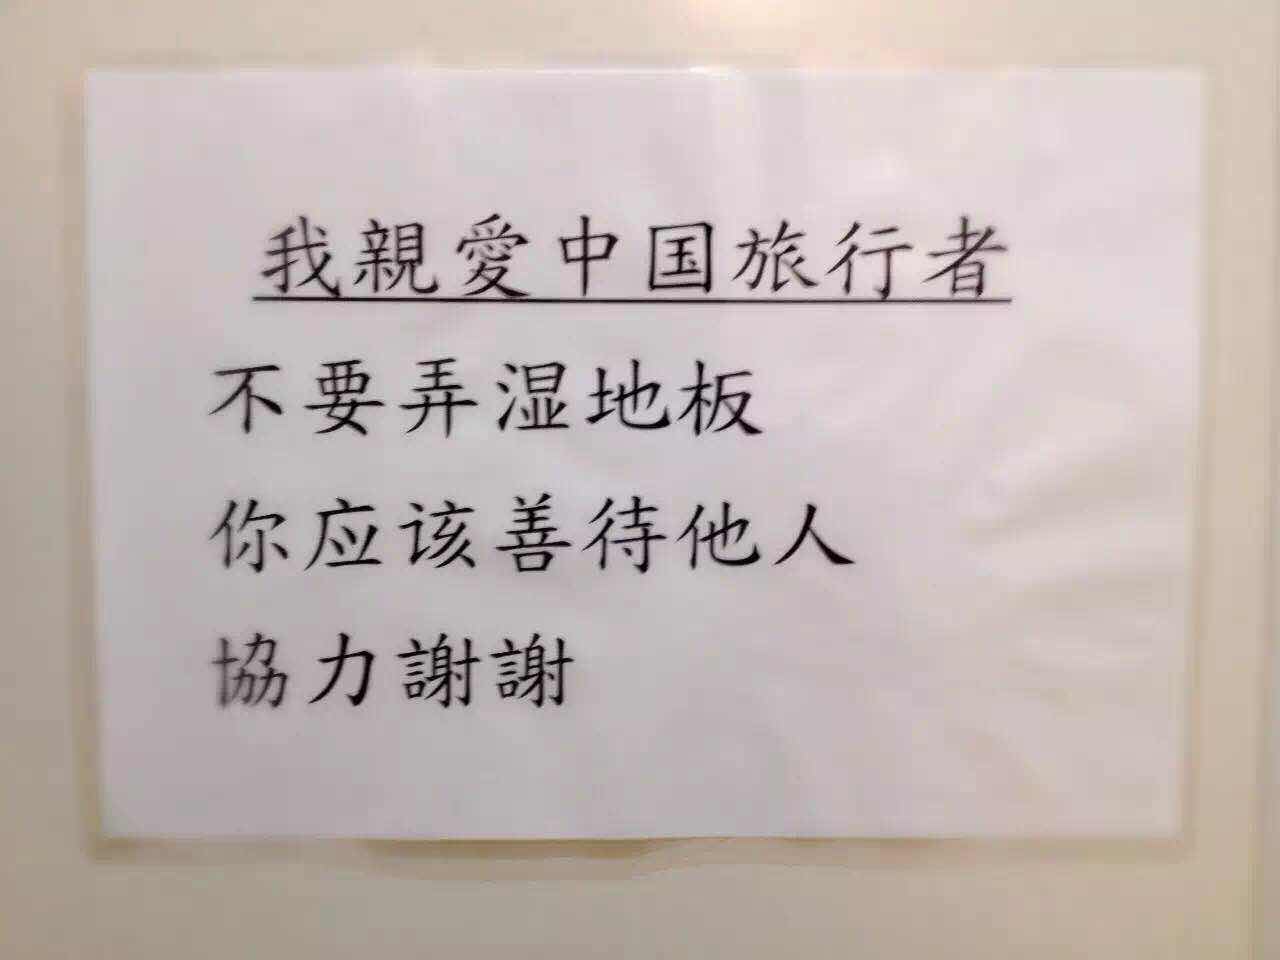 我親愛中国旅行者
不要弄湿地板
你应该善待他人
協力謝謝